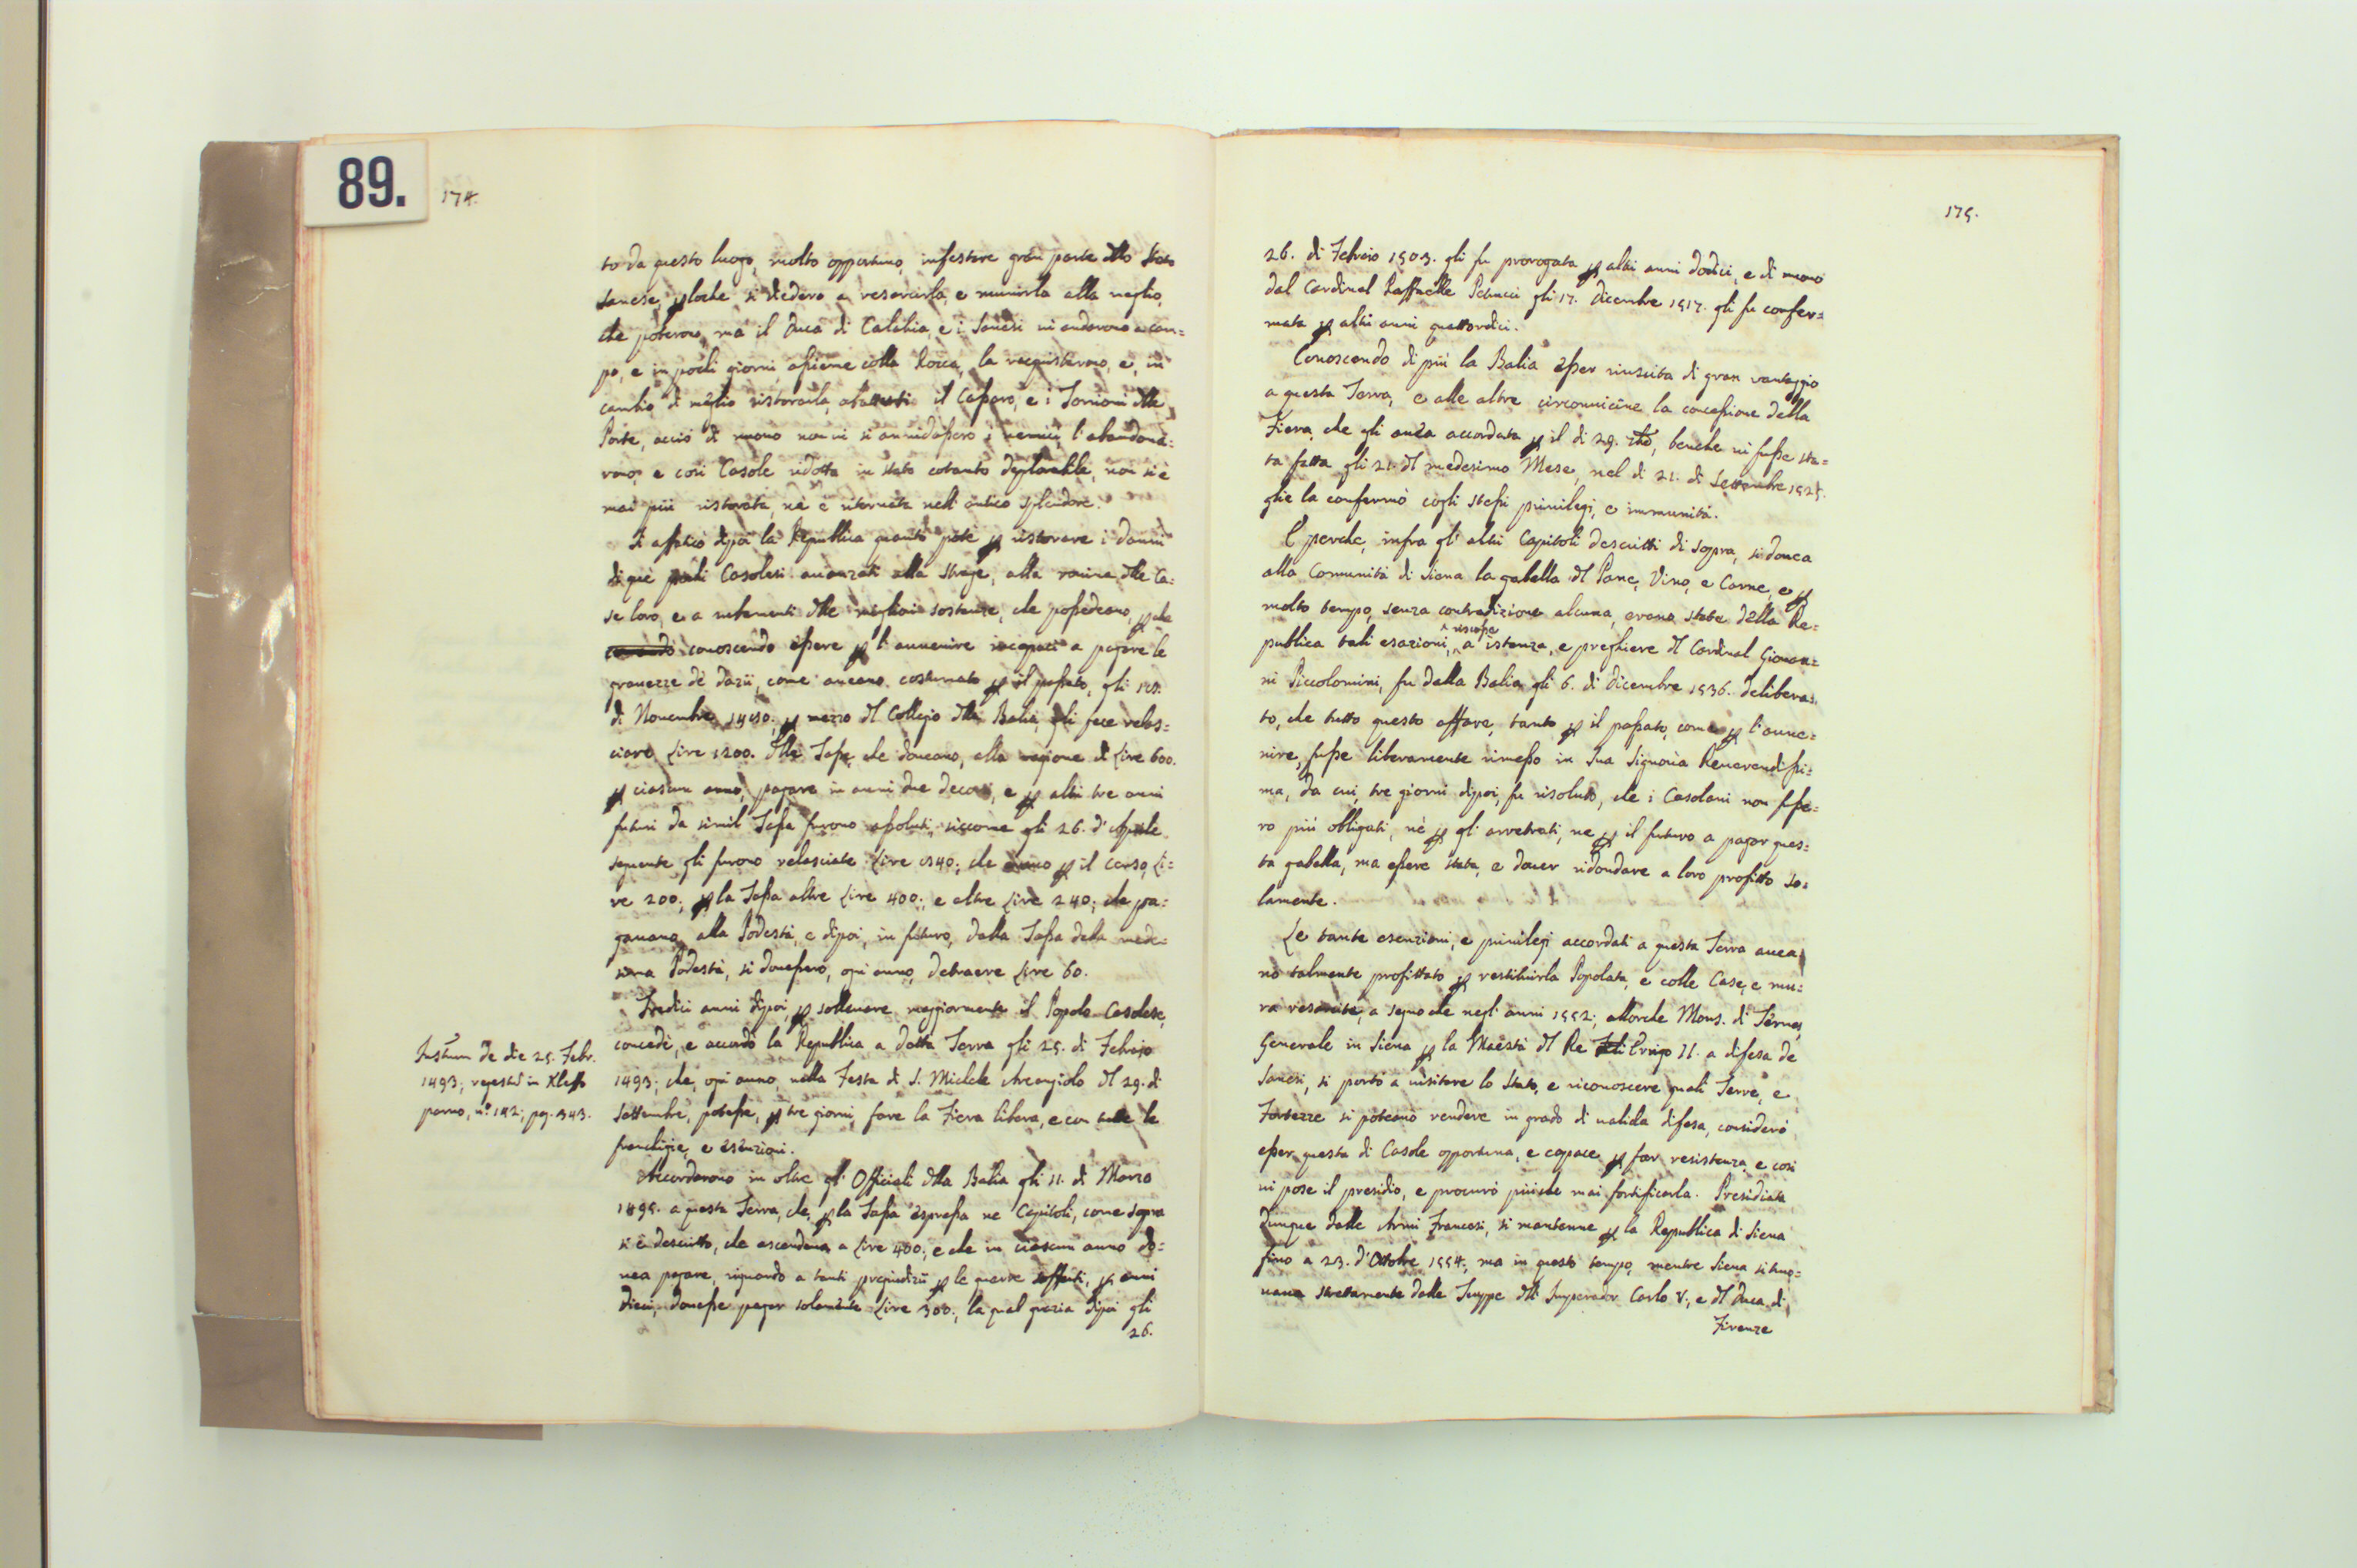 89.
174.
to da questo luogo, molto opportuno, infestare gran parte dllo Stato
Sanese, ꝑloche si diedero a resarcirla, e munirla alla meglio,
che poterono, mà il Duca di Calabria, e i Sanesi ui andorono a cam=
po, e in pochi giorni, assieme colla Rocca, la racquistarono, e, in
cambio di meglio ristorarla, il Cassaro, e i Torrioni dlle
Porte, acciò di nuouo non ui si annidassero i nemici, l'abandona=
rono, e così Casole ridotta in stato cotanto deplorabile, non si è
mai più ristorata, nè è ritornata nell'antico splendore.
Si affaticò dipoi la Republica quanto potè ꝑ ristorare i danni
di què pochi Casolesi auanzati alla strage, alla rouina dlle Ca=
se loro, e a rubamenti dlle migliori sostanze, che possedeano, ꝑche
conoscendo essere ꝑ l'auuenire incapaci a pagare le
grauezze dè dazii, come aueano costumato ꝑ il passato, gli
di Nouembre ꝑ mezzo dl Collegio dlla Balia, gli fece relas=
ciare Lire 1200. dlle Tasse, che doueano, alla ragione di Lire 600.
ꝑ ciascun anno, pagare in anni due decorsi, e ꝑ altri tre anni
futuri da simil Tassa furono assoluti, siccome gli 26. d'Aprile
seguente gli furono relasciate Lire che ꝑ il censo, Li=
re 200; ꝑ la Tassa altre Lire 400; e altre Lire 240; che pa=
gauano alla Podestà, e dipoi, in futuro, dalla Tassa dela mede=
sima Podestà, si douessero, ogni anno, detraere Lire 60.
Tredici anni dipoi, ꝑ solleuare maggiormente il Popolo Casolese,
concedè, e accordò la Republica a detta Terra gli 25. di Febraio
1493; che, ogni anno, nella Festa di S. Michele Arcangiolo dl 29. di
Settembre, potesse, ꝑ tre giorni, fare la Fiera libera, e con tutte le
franchigie, e esenzioni.
Accordarono in oltre gl'Officiali dlla Balia gli 11. di Marzo
1495. a questa Terra, che, ꝑ la Tassa espressa ne Capitoli, come sopra
si è descritto, che ascendeua a Lire 400; e che in ciascun anno do=
uea pagare, riguardo a tanti pregiudizii ꝑ le guerre sofferti, ꝑ anni
dieci, douesse pagar solamente Lire 300; la qual grazia dipoi gli
26.
Instum de die 25. Febr.
1493; regestũ in Xleffo
paruo, n.º 142; pag. 343.
175.
26. di Febraio 1503. gli fu prorogata ꝑ altri anni dodici, e di nuouo
dal Cardinal Raffaelle Petrucci gli 17. Dicembre 1517. gli fu confer=
mata ꝑ altri anni quattordici.
Conoscendo di più la Balia esser riuscita di gran vantaggio
a questa Terra, e alle altre circonuicine la concessione della
Fiera, che gli auea accordata ꝑ il dì 29. benche ui fusse sta=
ta fatta gli 21. dl medesimo Mese, nel dì 21. di Settembre 1525.
glie la confermò cogli stessi priuilegi, e immunità.
E perche, infra gl'altri Capitoli descritti di sopra, si douea
alla Comunità di Siena la gabella dl Pane, Vino, e Carne, e ꝑ
molto tempo, senza contradizione alcuna, erano state della Re=
publica tali esazioni, ^riscosse a istanza, e preghiere dl Cardinal Giouan=
ni Piccolomini, fu dalla Balia gli 6. di Dicembre 1536. delibera=
to, che tutto questo affare, tanto ꝑ il passato, come ꝑ l'auue=
nire, fusse liberamente rimesso in Sua Signoria Reuerendissi=
ma, da cui, tre giorni dipoi, fu risoluto, che i Casolani non fosse=
ro più obligati, nè ꝑ gl'arretrati, ne ꝑ il futuro a pagar ques=
ta gabella, ma essere stata, e douer ridondare a loro profitto so=
lamente.
Le tante esenzioni, e priuilegi accordati a questa Terra auea
no talmente profittato ꝑ restituirla Popolata, e colle Case, e mu=
ra resarcite, a segno che negl'anni 1552; allorche Mons. di Térmes
Generale in Siena ꝑ la Maestà dl Rè Enrigo II. a difesa de
Sanesi, si portò a uisitare lo Stato, e riconoscere quali Terre, e
Fortezze si poteano rendere in grado di ualida difesa, considerò
esser questa di Casole opportuna, e capace ꝑ far resistenza, e così
ui pose il presidio, e procurò più che mai fortificarla. Presidiata
dunque dalle Armi Francesi, si mantenne ꝑ la Republica di Siena
fino a 23. d'Ottobre 1554, ma in questo tempo, mentre Siena si truo=
uaua strettamente dalle Truppe dll'Imperador Carlo V., e dl Duca di
Firenze